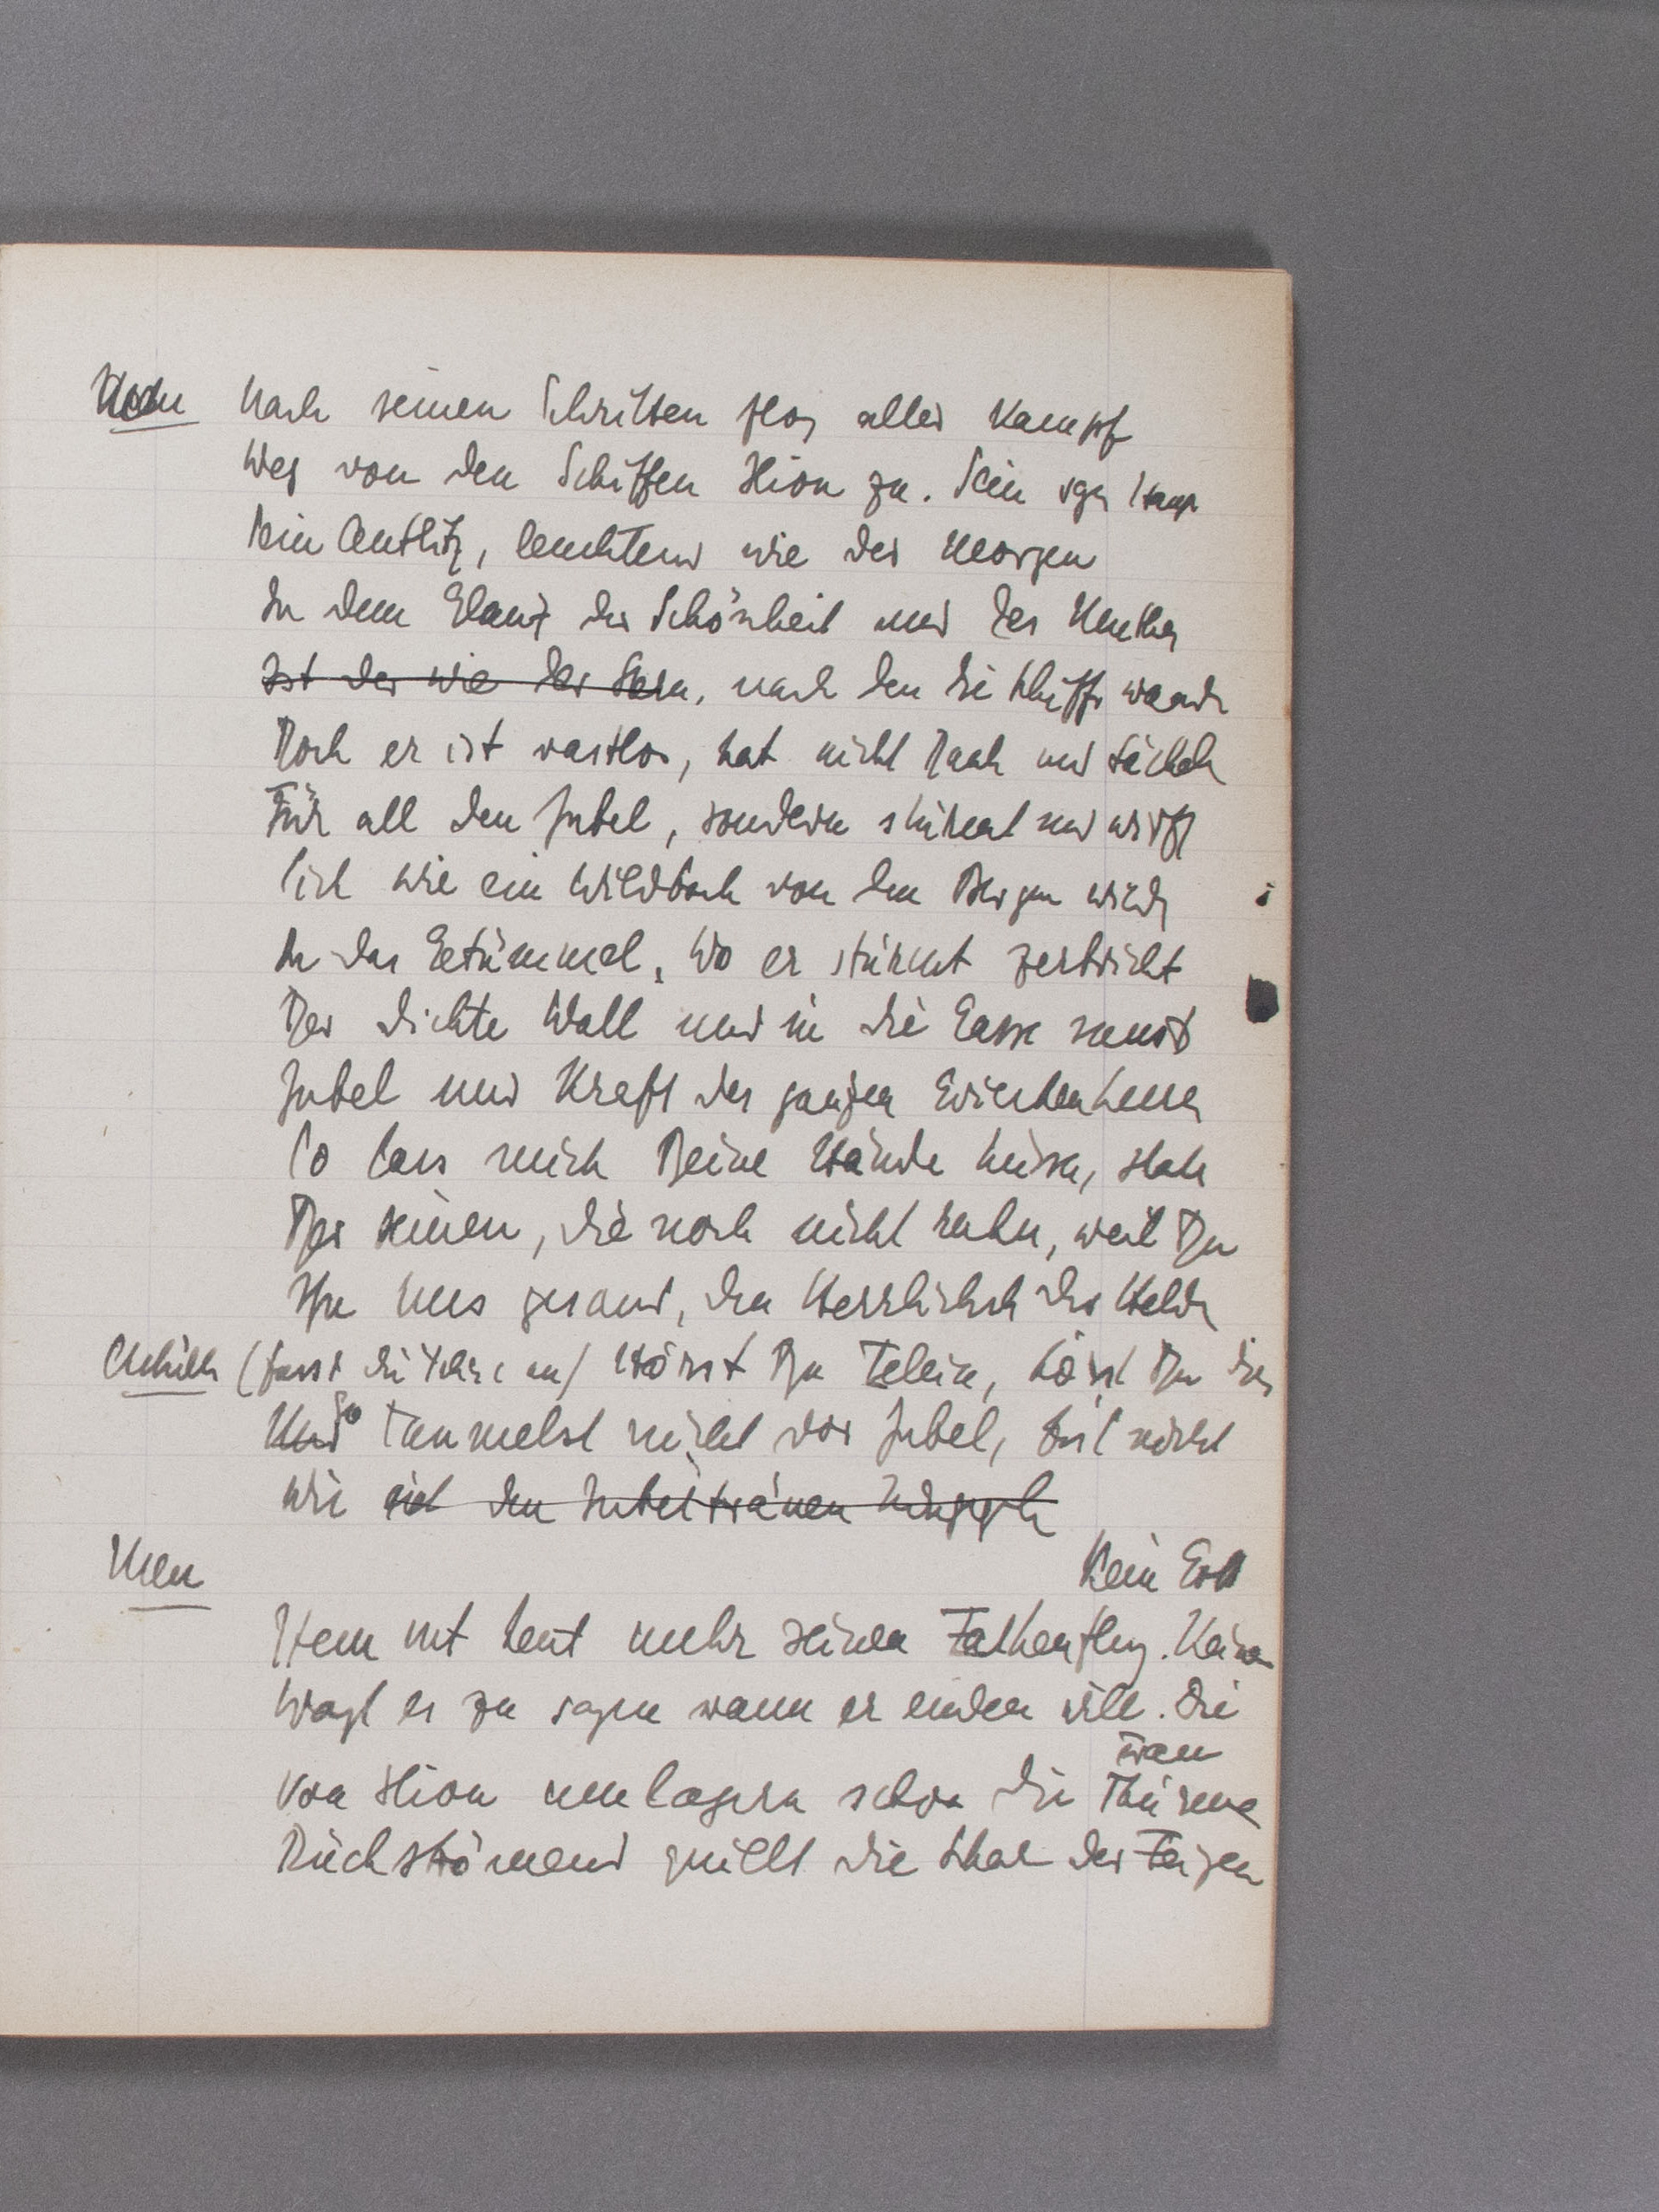 Nach seinen Schritten flog aller Kampf
Weg von den Schiffen Ilion zu. Sein
Sein Antlitz, leuchtend wie der Morgen
In dem Glanz der Schönheit und des
Ist der wie der Stern, nach den die Schiffe
Doch er ist rastlos, hat nicht Dank und Lächeln
Für all den Jubel, sondern stürmt und wirft
Sich wie ein Wildbach von den Bergen wieder
In das Getümmel, Wo er stürmt zerbricht
Der dichte Wall und in die Gasse
Jubel und Kraft der ganzen Griechenheere
So lass mich Deine Hände küssen, statt
Der seinen, die noch nicht ruhn, weil Du
Ihn uns gesand, den Herrlichsten der Helden
Achilles (fasst die an) Hörst Du hörst Du dies
Und so Taumelst nicht vor Jubel, bist nicht
Wie mit den Jubeltränen
Men Kein Gott
Hemmt heut mehr seinen Falkenflug. Keiner
Wagt es zu sagen wann er enden will. Die
Von Ilion umlagern schon die Thürme
Rückströmend quillt die Schar der Feigen